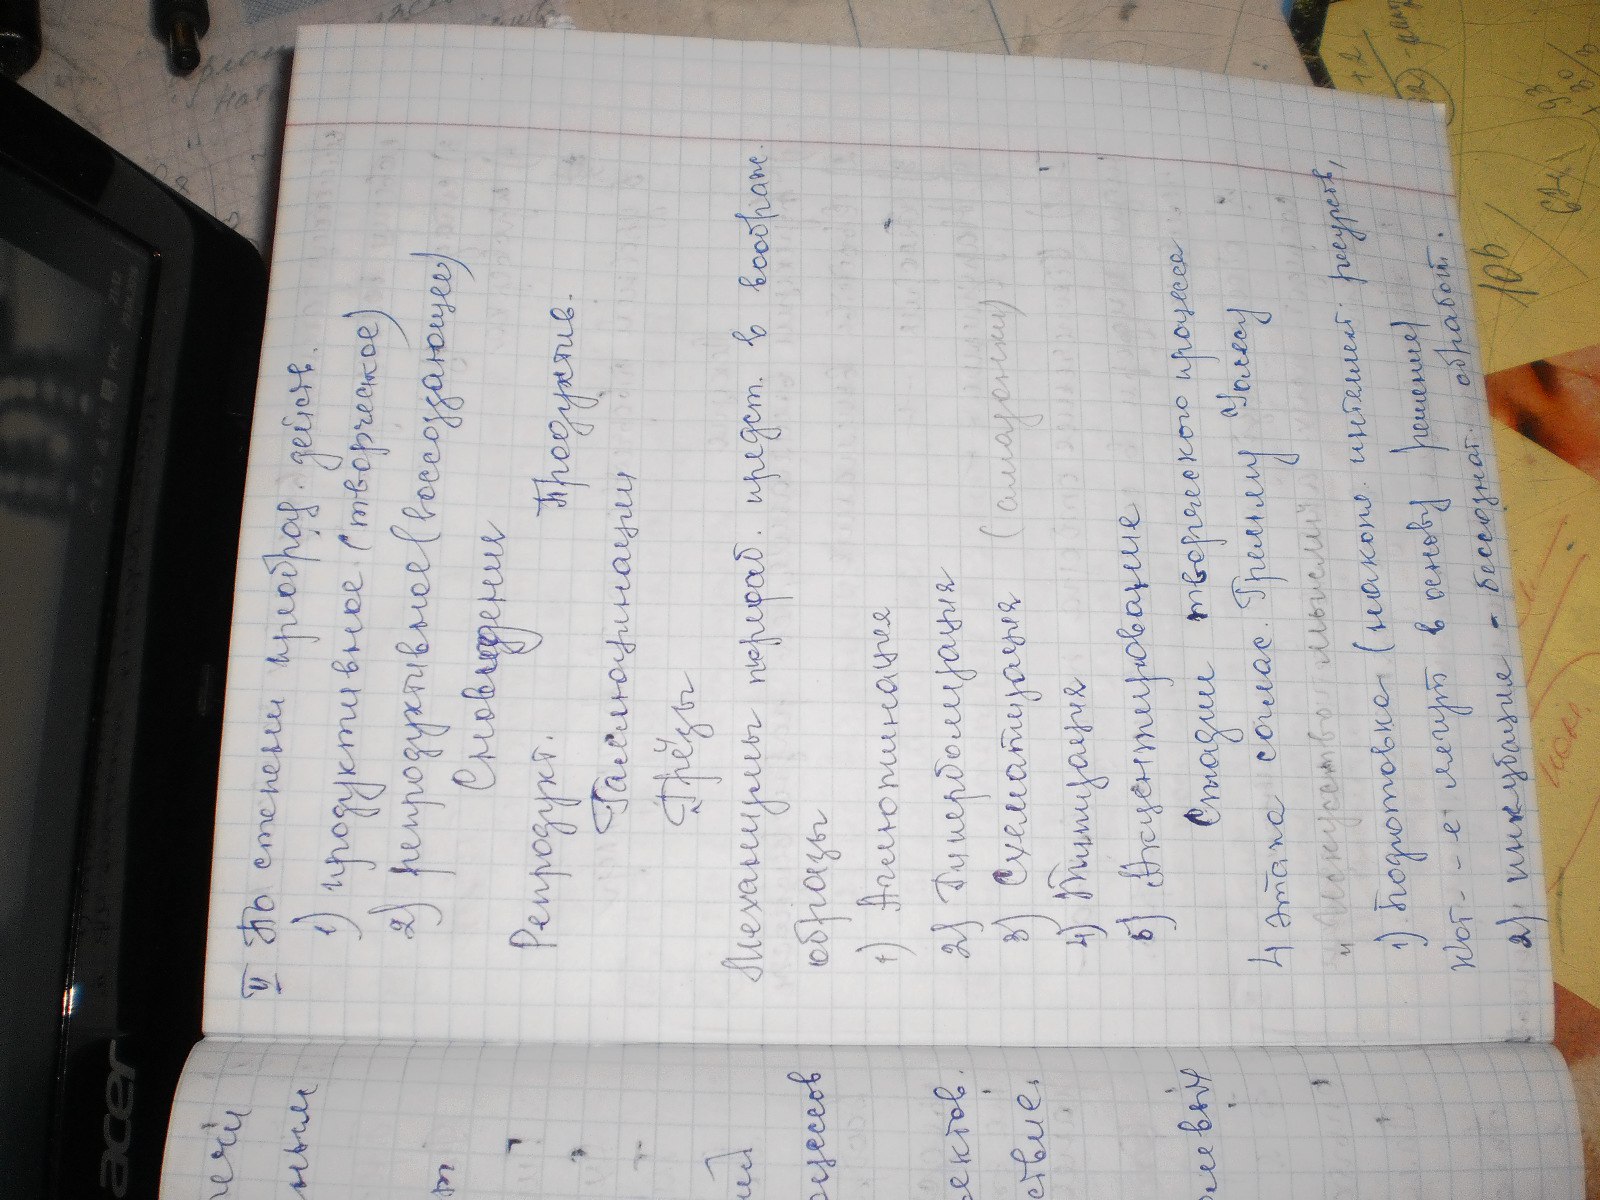 II По степени преобраз. действ.
1) продуктивное (творческое)
2) репродуктивное (воссоздающее)
Сновидения
Репродукт. Продуктив.
Галлюцинации
Грёзы
Механизмы перераб. предст. в воображ.
образы
1) Агглютинация
2) Гиперболизация
3) Схематизация
4) Типизация
5) Акцентирование
Стадии творческого процесса
4 этапа соглас. Грэхэму Уоллесу
"Искусство мыслить"
1) Подготовка (накопл. интеллект. ресурсов,
кот-е лягут в основу решения)
2) инкубация - бессознат. обработ.
acer
речи
ным
оцессов
ектов.
ствие.
левый
10b